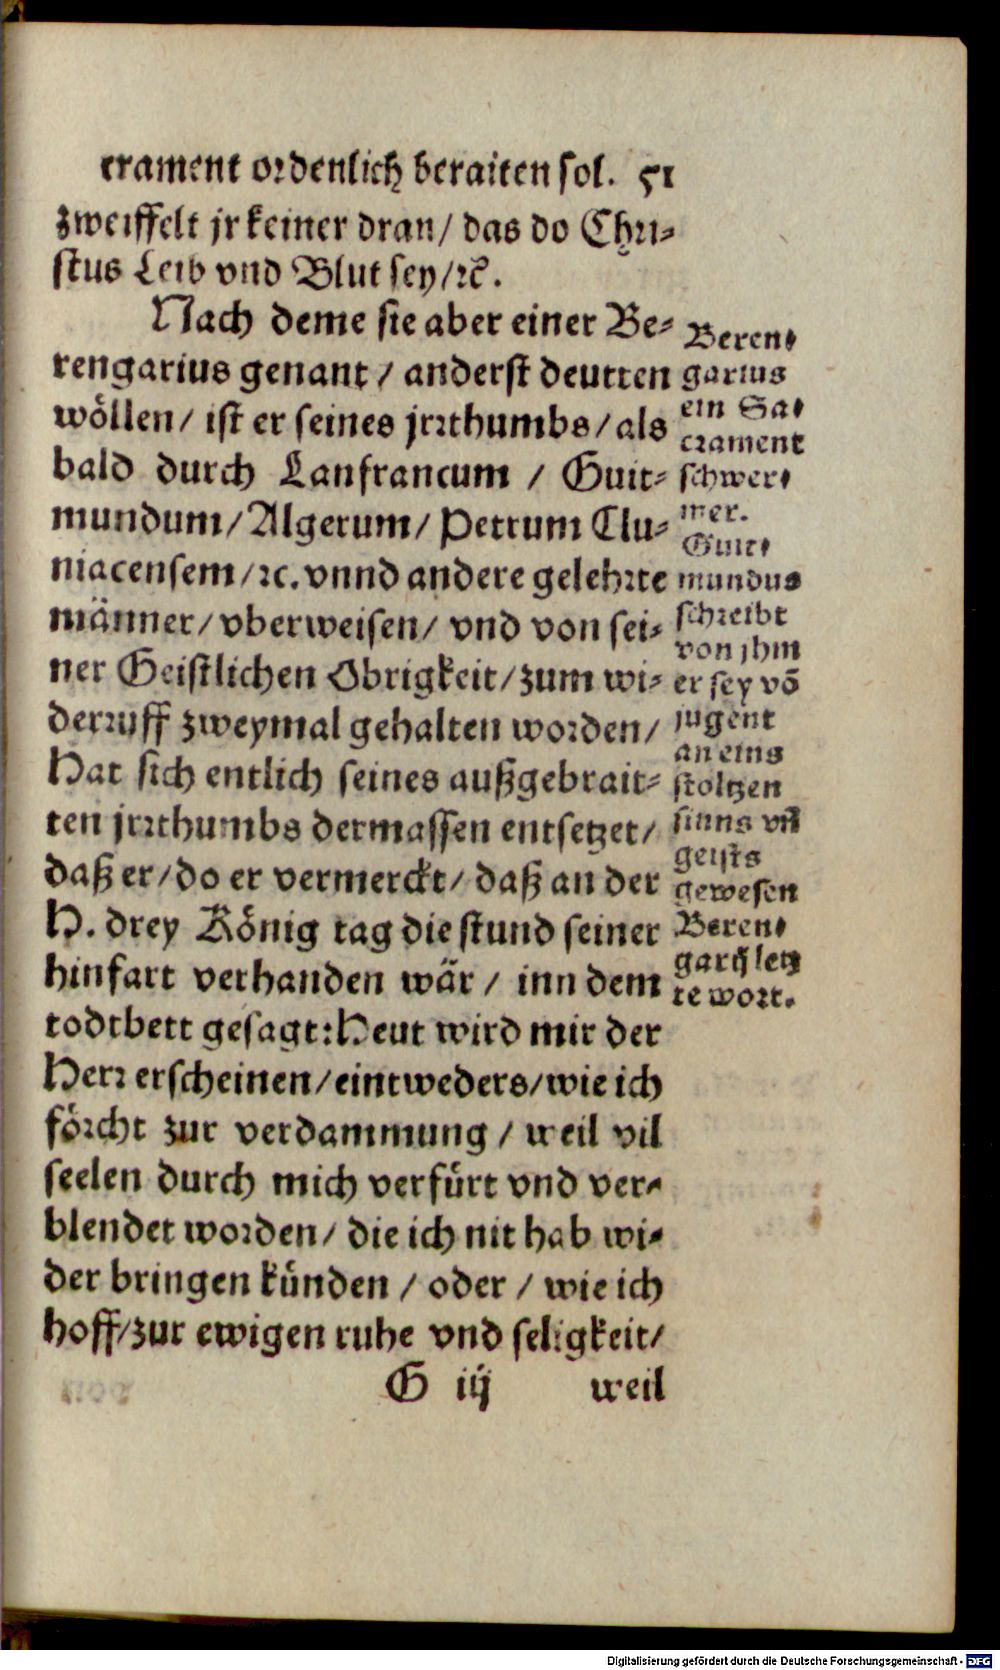 crament ordenlich beraiten sol. 51
zweiffelt jr keiner dran/ das do Chri⸗
stus Leib vnd Blut sey/ ꝛc̃.
Nach deme sie aber einer Be⸗
rengarius genant / anderst deutten
wöllen/ ist er seines jrꝛthumbs/ als
bald durch Lanfrancum / Guit⸗
mundum/ Algerum/ Petrum Clu⸗
niacensem/ ꝛc. vnnd andere gelehrte
männer/ vberweisen/ vnd von sei⸗
ner Geistlichen Obrigkeit/ zum wi⸗
derꝛuff zweymal gehalten worden/
Hat sich entlich seines außgebrait⸗
ten jrꝛthumbs dermassen entsetzet/
daß er/ do er vermerckt/ daß an der
H. drey König tag die stund seiner
hinfart verhanden wär / inn dem
todtbett gesagt: Heut wird mir der
Herꝛ erscheinen/ eintweders/ wie ich
förcht zur verdammung / weil vil
seelen durch mich verfürt vnd ver⸗
blendet worden/ die ich nit hab wi⸗
der bringen künden / oder / wie ich
hoff/ zur ewigen ruhe vnd seligkeit/
G iij weil
Beren⸗
garius
ein Sa⸗
crament
schwer⸗
mer.
Guit⸗
mundus
schreibt
von jhm
er sey võ
jugent
an eins
stoltzen
sinns vñ
geists
gewesen
Beren⸗
garij letz
te wort.
Digitalisierung gefördert durch die Deutsche Forschungsgemeinschaft - DFG